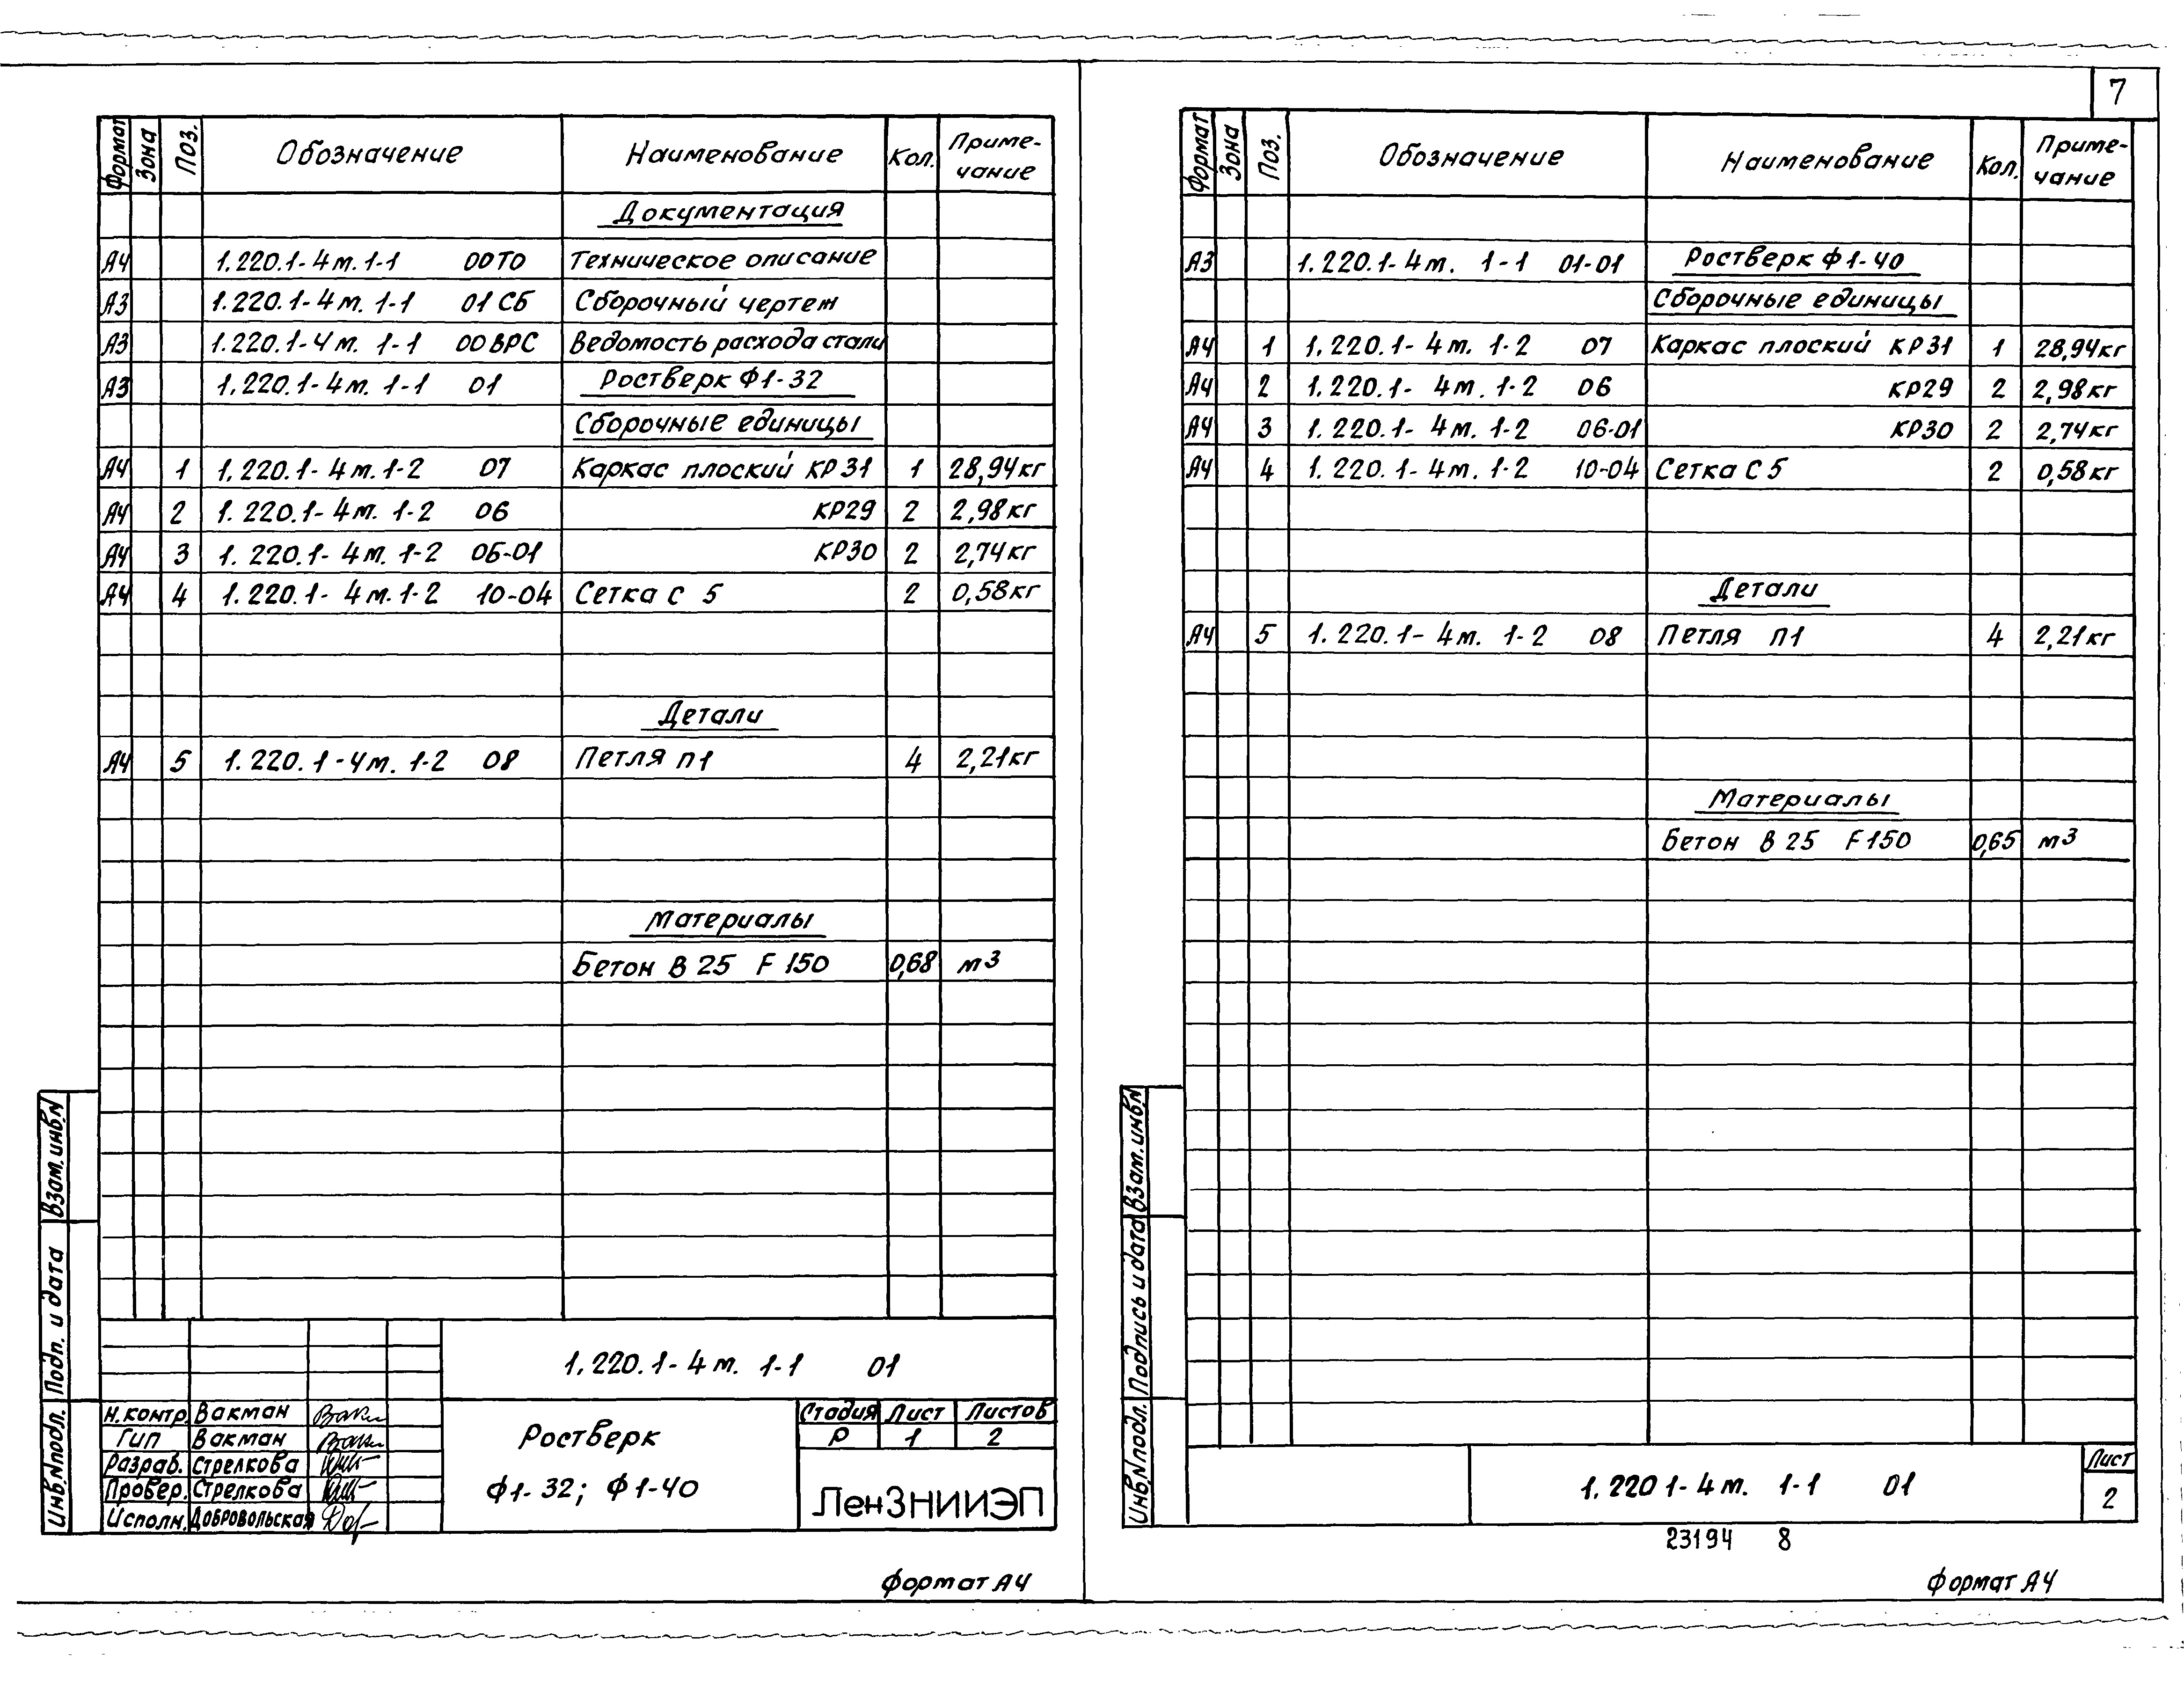 7
Формат Зона Поз. Обозначение Наименование Кол. Приме-
чание
Документация
А4 1.220.1-4м.1-1 00ТО Техническое описание
А3 1.220.1-4м.1-1 01СБ Сборочный чертеж
А3 1.220.1-4м. 1-1 00ВРС Ведомость расхода стали
А3 1.220.1-4м. 1-1 01 Ростверк Ф1-32
Сборочные единицы
А4 1 1.220.1-4м.1-2 07 Каркас плоский КР31 1 28,94кг
А4 2 1.220.1-4м. 1-2 06 КР29 2 2,98кг
А4 3 1.220.1-4м. 1-2 06-01 КР30 2 2,74кг
А4 4 1.220.1-4м.1-2 10-04 Сетка С 5 2 0,58кг
Детали
А4 5 1.220.1-4м. 1-2 08 Петля П1 4 2,21кг
Материалы
Бетон В 25 F 150 0,68 м3
Взам.инв.N
Подп. и дата
Инв.Nподл.
1.220.1-4м. 1-1 01
Н.контр. Вакман
Гип Вакман
Разраб. Стрелкова
Провер. Стрелкова
Исполн. Добровольская
Ростверк
Ф1-32; Ф1-40
Стадия Лист Листов
Р 1 2
ЛенЗНИИЭП
Формат А4
Формат Зона Поз. Обозначение Наименование Кол. Приме-
чание
А3 1.220.1-4м. 1-1 01-01 Ростверк Ф1-40
Сборочные единицы
А4 1 1.220.1-4м. 1-2 07 Каркас плоский КР31 1 28,94кг
А4 2 1.220.1-4м. 1-2 06 КР29 2 2,98кг
А4 3 1.220.1-4м. 1-2 06-01 КР30 2 2,74кг
А4 4 1.220.1-4м. 1-2 10-04 Сетка С5 2 0,58кг
Детали
А4 5 1.220.1-4м. 1-2 08 Петля П1 4 2,21кг
Материалы
Бетон В 25 F150 0,65 м3
Взам.инв.N
Подпись и дата
Инв.Nподл.
1.220 1-4м. 1-1 01
Лист
2
23194 8
Формат А4